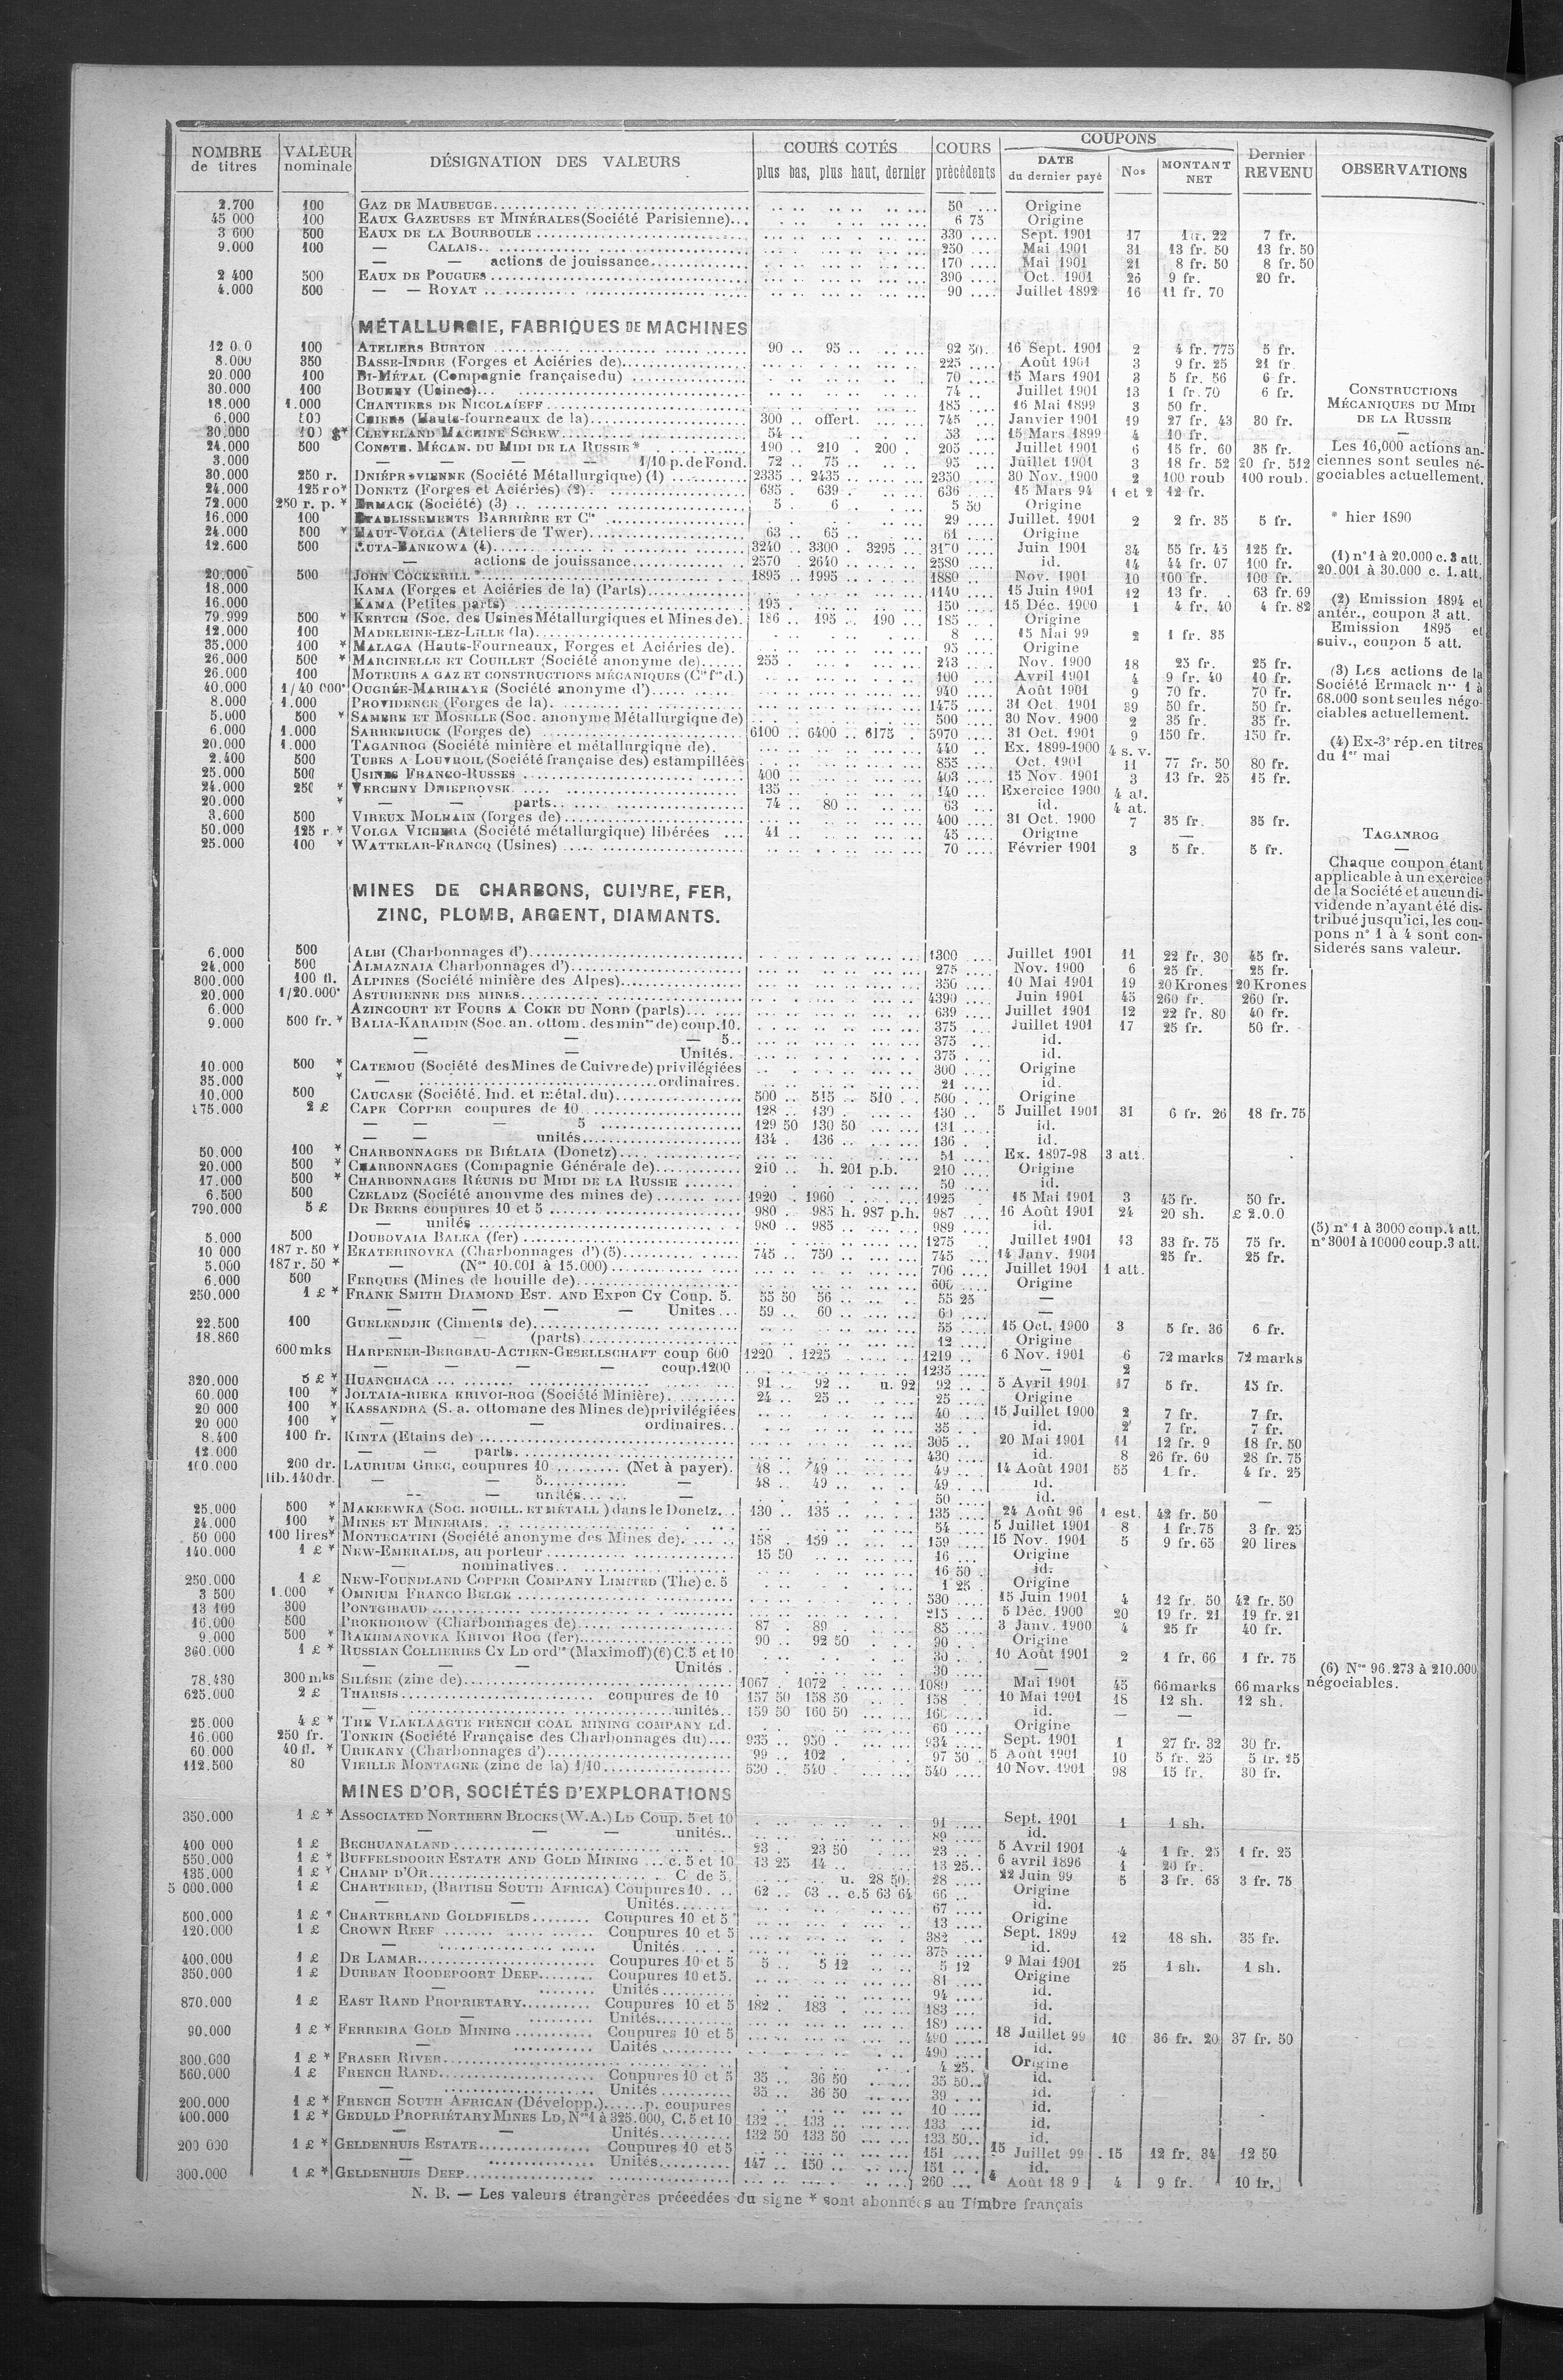 NOMBRE de titres | VALEUR nominale | DÉSIGNATION DES VALEURS | COURS COTÉS plus bas, plus haut, dernier | COURS précédents | COUPONS DATE du dernier payé | Nos | MONTANT NET | Dernier REVENU | OBSERVATIONS
2.700 | 100 | GAZ DE MAUBEUGE | 50 | Origine
45 000 | 100 | EAUX GAZEUSES ET MINÉRALES (Société Parisienne) | 6 75 | Origine
3 600 | 500 | EAUX DE LA BOURBOULE | 330 | Sept. 1901 | 17 | 22 | 7 fr.
9.000 | 100 | — CALAIS | 250 | Mai 1901 | 31 | 13 fr. 50 | 13 fr. 50
— — actions de jouissance | 170 | Mai 1901 | 21 | 8 fr. 50 | 8 fr. 50
2 400 | 500 | EAUX DE POUGUES | 390 | Oct. 1901 | 26 | 9 fr. | 20 fr.
4.000 | 500 | — — ROYAT | 90 | Juillet 1892 | 16 | 11 fr. 70
MÉTALLURGIE, FABRIQUES DE MACHINES
12 0.0 | 100 | ATELIERS BURTON | 90 | 95 | 92 50 | 16 Sept. 1901 | 2 | 4 fr. 775 | 5 fr.
8.000 | 350 | BASSE-INDRE (Forges et Aciéries de) | 225 | Août 1901 | 3 | 9 fr. 25 | 21 fr
20.000 | 100 | BI-MÉTAL (Compagnie française du) | 70 | 15 Mars 1901 | 3 | 5 fr. 56 | 6 fr.
30.000 | 100 | (Usines) | 74 | Juillet 1901 | 13 | 1 fr. 70 | 6 fr.
18.000 | 1.000 | CHANTIERS DE NICOLAÏEFF | 185 | 16 Mai 1899 | 3 | 50 fr.
6.000 | CHIERS (Hauts-fourneaux de la) | 300 | offert | 745 | Janvier 1901 | 19 | 27 fr. 43 | 30 fr.
30.000 | 100 $* | CLEVELAND MACHINE SCREW | 54 | 53 | 15 Mars 1899 | 4 | 10 fr.
24.000 | 500 | CONSTR. MÉCAN. DU MIDI DE LA RUSSIE * | 190 | 210 | 200 | 205 | Juillet 1901 | 6 | 15 fr. 60 | 35 fr.
3.000 | — — — 1/10 p. de Fond. | 72 | 75 | 95 | Juillet 1901 | 3 | 18 fr. 52 | 20 fr. 512
30.000 | 250 r. | DNIÉPROVIENNE (Société Métallurgique) (1) | 2335 | 2435 | 2350 | 30 Nov. 1900 | 2 | 100 roub | 100 roub.
24.000 | 125 ro* | DONETZ (Forges et Aciéries) (2) | 635 | 639 | 636 | 15 Mars 94 | 1 et 2 | 12 fr.
72.000 | 250 r. p. * | ERMACK (Société) (3) | 5 | 6 | 5 50 | Origine
16.000 | 100 | ETABLISSEMENTS BARRIÈRE ET Cie | 29 | Juillet. 1901 | 2 | 2 fr. 35 | 5 fr.
24.000 | 500 * | HAUT-VOLGA (Ateliers de Twer) | 63 | 65 | 61 | Origine
12.600 | 500 | HUTA-BANKOWA (4) | 3240 | 3300 | 3295 | 3170 | Juin 1901 | 34 | 55 fr. 45 | 125 fr.
— actions de jouissance | 2570 | 2640 | 2580 | id. | 14 | 44 fr. 07 | 100 fr.
20.000 | 500 | JOHN COCKERILL * | 1895 | 1995 | 1880 | Nov. 1901 | 10 | 100 fr. | 100 fr.
18.000 | KAMA (Forges et Aciéries de la) (Parts) | 1140 | 15 Juin 1901 | 12 | 13 fr. | 63 fr. 69
16.000 | KAMA (Petites parts) | 195 | 150 | 15 Déc. 1900 | 1 | 4 fr. 40 | 4 fr. 82
79.999 | 500 * | KERTCH (Soc. des Usines Métallurgiques et Mines de) | 186 | 195 | 190 | 185 | Origine
12.000 | 100 | MADELEINE-LEZ-LILLE (la) | 8 | 15 Mai 99 | 2 | 1 fr. 35
35.000 | 100 * | MALAGA (Hauts-Fourneaux, Forges et Aciéries de) | 95 | Origine
26.000 | 500 * | MARCINELLE ET COUILLET (Société anonyme de) | 255 | 243 | Nov. 1900 | 18 | 25 fr. | 25 fr.
26.000 | 100 | MOTEURS A GAZ ET CONSTRUCTIONS MÉCANIQUES (Cie fse d.) | 100 | Avril 1901 | 4 | 9 fr. 40 | 10 fr.
40.000 | 1/40 000e | OUGRÉE-MARIHAYE (Société anonyme d') | 940 | Août 1901 | 9 | 70 fr. | 70 fr.
8.000 | 1.000 | PROVIDENCE (Forges de la) | 1475 | 31 Oct. 1901 | 39 | 50 fr. | 50 fr.
5.000 | 500 * | SAMBRE ET MOSELLE (Soc. anonyme Métallurgique de) | 500 | 30 Nov. 1900 | 2 | 35 fr. | 35 fr.
6.000 | 1.000 | SARREBRUCK (Forges de) | 6100 | 6400 | 6175 | 5970 | 31 Oct. 1901 | 9 | 150 fr. | 150 fr.
20.000 | 1.000 | TAGANROG (Société minière et métallurgique de) | 440 | Ex. 1899-1900 | 4 s. v.
2.400 | 500 | TUBES A LOUVROIL (Société française des) estampillées | 855 | Oct. 1901 | 11 | 77 fr. 50 | 80 fr.
25.000 | 500 | USINES FRANCO-RUSSES | 400 | 403 | 15 Nov. 1901 | 3 | 13 fr. 25 | 15 fr.
24.000 | 250 * | VERCHNY DNIEPROVSK | 135 | 140 | Exercice 1900 | 4 at.
20.000 | * | — — parts | 74 | 80 | 63 | id. | 4 at.
3.600 | 500 | VIREUX MOLHAIN (forges de) | 400 | 31 Oct. 1900 | 7 | 35 fr. | 35 fr.
50.000 | 125 r. * | VOLGA VICHERA (Société métallurgique) libérées | 41 | 45 | Origine | —
25.000 | 100 * | WATTELAR-FRANCQ (Usines) | 70 | Février 1901 | 3 | 5 fr. | 5 fr.
CONSTRUCTIONS
MÉCANIQUES DU MIDI
DE LA RUSSIE
—
Les 16,000 actions an-
ciennes sont seules né-
gociables actuellement.
* hier 1890
(1) n° 1 à 20.000 c. 3 att.
20.001 à 30.000 c. 1. att.
(2) Emission 1894 et
antér., coupon 3 att.
Emission 1895 et
suiv., coupon 5 att.
(3) Les actions de la
Société Ermack nos 1 à
68.000 sont seules négo-
ciables actuellement.
(4) Ex-3e rép. en titres
du 1er mai
TAGANROG
—
Chaque coupon étant
applicable à un exercice
de la Société et aucun di-
vidende n'ayant été dis-
tribué jusqu'ici, les cou-
pons n° 1 à 4 sont con-
siderés sans valeur.
MINES DE CHARBONS, CUIVRE, FER,
ZINC, PLOMB, ARGENT, DIAMANTS.
6.000 | 500 | ALBI (Charbonnages d') | 1300 | Juillet 1901 | 11 | 22 fr. 30 | 45 fr.
24.000 | 500 | ALMAZNAIA Charbonnages d') | 275 | Nov. 1900 | 6 | 25 fr. | 25 fr.
300.000 | 100 fl. | ALPINES (Société minière des Alpes) | 350 | 10 Mai 1901 | 19 | 20 Krones | 20 Krones
20.000 | 1/20.000e | ASTURIENNE DES MINES | 4390 | Juin 1901 | 45 | 260 fr. | 260 fr.
6.000 | AZINCOURT ET FOURS A COKE DU NORD (parts) | 639 | Juillet 1901 | 12 | 22 fr. 80 | 40 fr.
9.000 | 500 fr. * | BALIA-KARAIDIN (Soc. an. ottom. des mines de) coup. 10. | 375 | Juillet 1901 | 17 | 25 fr. | 50 fr.
— — — 5 | 375 | id.
— — Unités. | 375 | id.
10.000 | 500 * | CATEMOU (Société des Mines de Cuivre de) privilégiées | 300 | Origine
35.000 | * | — ordinaires. | 21 | id.
10.000 | 500 | CAUCASE (Société. Ind. et métal. du) | 500 | 515 | 510 | 500 | Origine
175.000 | 2 £ | CAPE COPPER coupures de 10 | 128 | 130 | 130 | 5 Juillet 1901 | 31 | 6 fr. 26 | 18 fr. 75
— — — 5 | 129 50 | 130 50 | 131 | id.
— — unités | 134 | 136 | 136 | id.
50.000 | 100 * | CHARBONNAGES DE BIÉLAIA (Donetz) | 51 | Ex. 1897-98 | 3 att.
20.000 | 500 * | CHARBONNAGES (Compagnie Générale de) | 210 | h. 201 p.b. | 210 | Origine
17.000 | 500 * | CHARBONNAGES RÉUNIS DU MIDI DE LA RUSSIE | 50 | id.
6.500 | 500 | CZELADZ (Société anonyme des mines de) | 1920 | 1960 | 1925 | 15 Mai 1901 | 3 | 45 fr. | 50 fr.
790.000 | 5 £ | DE BEERS coupures 10 et 5 | 980 | 985 h. 987 p.h. | 987 | 16 Août 1901 | 24 | 20 sh. | £ 2.0.0
— unités | 980 | 985 | 989 | id.
5.000 | 500 | DOUBOVAIA BALKA (fer) | 1275 | Juillet 1901 | 13 | 33 fr. 75 | 75 fr.
10 000 | 187 r. 50 * | EKATERINOVKA (Charbonnages d') (5) | 745 | 750 | 745 | 14 Janv. 1901 | 25 fr. | 25 fr.
5.000 | 187 r. 50 * | — (Nos 10.001 à 15.000) | 706 | Juillet 1901 | 1 att.
6.000 | 500 | FERQUES (Mines de houille de) | 600 | Origine
250.000 | 1 £ * | FRANK SMITH DIAMOND EST. AND EXPon CY Coup. 5. | 55 50 | 56 | 55 25 | —
— — — — Unites | 59 | 60 | 60 | —
22.500 | 100 | GUELENDJIK (Ciments de) | 55 | 15 Oct. 1900 | 3 | 5 fr. 36 | 6 fr.
18.860 | — — (parts) | 12 | Origine
600 mks | HARPENER-BERGBAU-ACTIEN-GESELLSCHAFT coup 600 | 1220 | 1225 | 1219 | 6 Nov. 1901 | 6 | 72 marks | 72 marks
— — — — coup. 1200 | 1235 | — | 2
320.000 | 5 £ * | HUANCHACA | 91 | 92 | u. 92 | 92 | 5 Avril 1901 | 17 | 5 fr. | 15 fr.
60.000 | 100 * | JOLTAIA-RIEKA KRIVOI-ROG (Société Minière) | 24 | 25 | 25 | Origine
20 000 | 100 * | KASSANDRA (S. a. ottomane des Mines de) privilégiées | 40 | 15 Juillet 1900 | 2 | 7 fr. | 7 fr.
20 000 | 100 * | — — ordinaires | 35 | id. | 2 | 7 fr. | 7 fr.
8.400 | 100 fr. | KINTA (Etains de) | 305 | 20 Mai 1901 | 11 | 12 fr. 9 | 18 fr. 50
12.000 | — — parts. | 430 | id. | 8 | 26 fr. 60 | 28 fr. 75
100.000 | 200 dr. | LAURIUM GREC, coupures 10 (Net à payer) | 48 | 49 | 49 | 14 Août 1901 | 55 | 1 fr. | 4 fr. 25
lib. 140 dr. | — — 5 — | 48 | 49 | 49 | id.
— — unités — | 50 | id. | —
25.000 | 500 * | MAKEEWKA (SOC. HOUILL. ET MÉTALL.) dans le Donetz | 130 | 135 | 135 | 24 Août 96 | 1 est. | 42 fr. 50
24.000 | 100 * | MINES ET MINERAIS | 54 | 5 Juillet 1901 | 8 | 1 fr. 75 | 3 fr. 25
50 000 | 100 lires* | MONTECATINI (Société anonyme des Mines de) | 158 | 159 | 159 | 15 Nov. 1901 | 5 | 9 fr. 65 | 20 lires
140.000 | 1 £ * | NEW-EMERALDS, au porteur | 15 50 | 16 | Origine
— nominatives | 16 50 | id.
250.000 | 1 £ | NEW-FOUNDLAND COPPER COMPANY LIMITED (The) c. 5 | 1 25 | Origine
3 500 | 1.000 * | OMNIUM FRANCO BELGE | 530 | 15 Juin 1901 | 4 | 12 fr. 50 | 42 fr. 50
13 100 | 300 | PONTGIBAUD | 215 | 5 Déc. 1900 | 20 | 19 fr. 21 | 19 fr. 21
16.000 | 500 | PROKHOROW (Charbonnages de) | 87 | 89 | 85 | 3 Janv. 1900 | 4 | 25 fr | 40 fr.
9.000 | 500 * | RAKHMANOVKA KRIVOI ROG (fer) | 90 | 92 50 | 90 | Origine
360.000 | 1 £ * | RUSSIAN COLLIERIES CY LD ordres (Maximoff) (6) C. 5 et 10 | 30 | 10 Août 1901 | 2 | 1 fr. 66 | 1 fr. 75
— — — Unités | 30 | —
78.430 | 300 mks | SILÉSIE (zinc de) | 1067 | 1072 | 1080 | Mai 1901 | 45 | 66 marks | 66 marks
625.000 | 2 £ | THARSIS coupures de 10 | 157 50 | 158 50 | 158 | 10 Mai 1901 | 18 | 12 sh. | 12 sh.
— unités | 159 50 | 160 50 | 160 | id. | — | —
25.000 | 4 £ * | THE VLAKLAAGTE FRENCH COAL MINING COMPANY Ld. | 60 | Origine
16.000 | 250 fr. | TONKIN (Société Française des Charbonnages du) | 935 | 950 | 934 | Sept. 1901 | 1 | 27 fr. 32 | 30 fr.
60.000 | 40 fl. * | URIKANY (Charbonnages d') | 99 | 102 | 97 50 | 5 Août 1901 | 10 | 5 fr. 25 | 5 fr. 25
112.500 | 80 | VIEILLE MONTAGNE (zinc de la) 1/10 | 530 | 540 | 540 | 10 Nov. 1901 | 98 | 15 fr. | 30 fr.
(5) n° 1 à 3000 coup. 4 att.
n° 3001 à 10000 coup. 3 att.
(6) Nos 96.273 à 210.000
négociables.
MINES D'OR, SOCIÉTÉS D'EXPLORATIONS
350.000 | 1 £ * | ASSOCIATED NORTHERN BLOCKS (W.A.) LD Coup. 5 et 10 | 91 | Sept. 1901 | 1 | 1 sh.
— — — unités | 89 | id.
400 000 | 1 £ | BECHUANALAND | 23 | 23 50 | 23 | 5 Avril 1901 | 4 | 1 fr. 25 | 1 fr. 25
550.000 | 1 £ * | BUFFELSDOORN ESTATE AND GOLD MINING c. 5 et 10 | 13 25 | 14 | 13 25 | 6 avril 1896 | 1 | 20 fr.
135.000 | 1 £ * | CHAMP D'OR C de 5 | u. 28 50 | 28 | 22 Juin 99 | 5 | 3 fr. 63 | 3 fr. 75
5 000.000 | 1 £ | CHARTERED, (BRITISH SOUTH AFRICA) Coupures 10 | 62 | 63 | c.5 63 64 | 66 | Origine
— — Unités | 67 | id.
500.000 | 1 £ * | CHARTERLAND GOLDFIELDS Coupures 10 et 5 | 13 | Origine
120.000 | 1 £ | CROWN REEF Coupures 10 et 5 | 382 | Sept. 1899 | 12 | 18 sh. | 35 fr.
— Unités | 375 | id.
400.000 | 1 £ | DE LAMAR Coupures 10 et 5 | 5 | 5 12 | 5 12 | 9 Mai 1901 | 25 | 1 sh. | 1 sh.
350.000 | 1 £ | DURBAN ROODEPOORT DEEP Coupures 10 et 5. | 81 | Origine
— Unités | 94 | id.
870.000 | 1 £ | EAST RAND PROPRIETARY Coupures 10 et 5 | 182 | 183 | 183 | id.
— Unités | 180 | id.
90.000 | 1 £ * | FERREIRA GOLD MINING Coupures 10 et 5 | 490 | 18 Juillet 99 | 10 | 36 fr. 20 | 37 fr. 50
— Unités | 490 | id.
300.000 | 1 £ * | FRASER RIVER | 4 25 | Origine
560.000 | 1 £ | FRENCH RAND Coupures 10 et 5 | 35 | 36 50 | 35 50 | id.
— Unités | 35 | 36 50 | 39 | id.
200.000 | 1 £ * | FRENCH SOUTH AFRICAN (Développ.) p. coupures | 10 | id.
400.000 | 1 £ * | GEDULD PROPRIÉTARY MINES LD, Nos 1 à 325.000, C. 5 et 10 | 132 | 133 | 133 | id.
— — Unités | 132 50 | 133 50 | 133 50 | id.
200 000 | 1 £ * | GELDENHUIS ESTATE Coupures 10 et 5 | 151 | 15 Juillet 99 | 15 | 12 fr. 34 | 12 50
— Unités | 147 | 150 | 151 | id.
300.000 | 1 £ * | GELDENHUIS DEEP | 260 | 4 Août 18 9 | 4 | 9 fr. | 10 fr.
N. B. — Les valeurs étrangères précedées du signe * sont abonnées au Timbre français